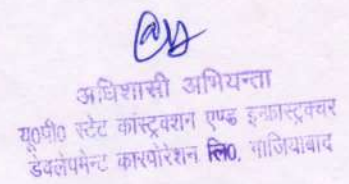 अधिशासी अभियन्ता
यू०पी० स्टेट कांस्ट्रक्शन एण्ड इन्फ्रास्ट्रक्चर
डेवलपमेन्ट कारपोरेशन लि०, गाजियाबाद